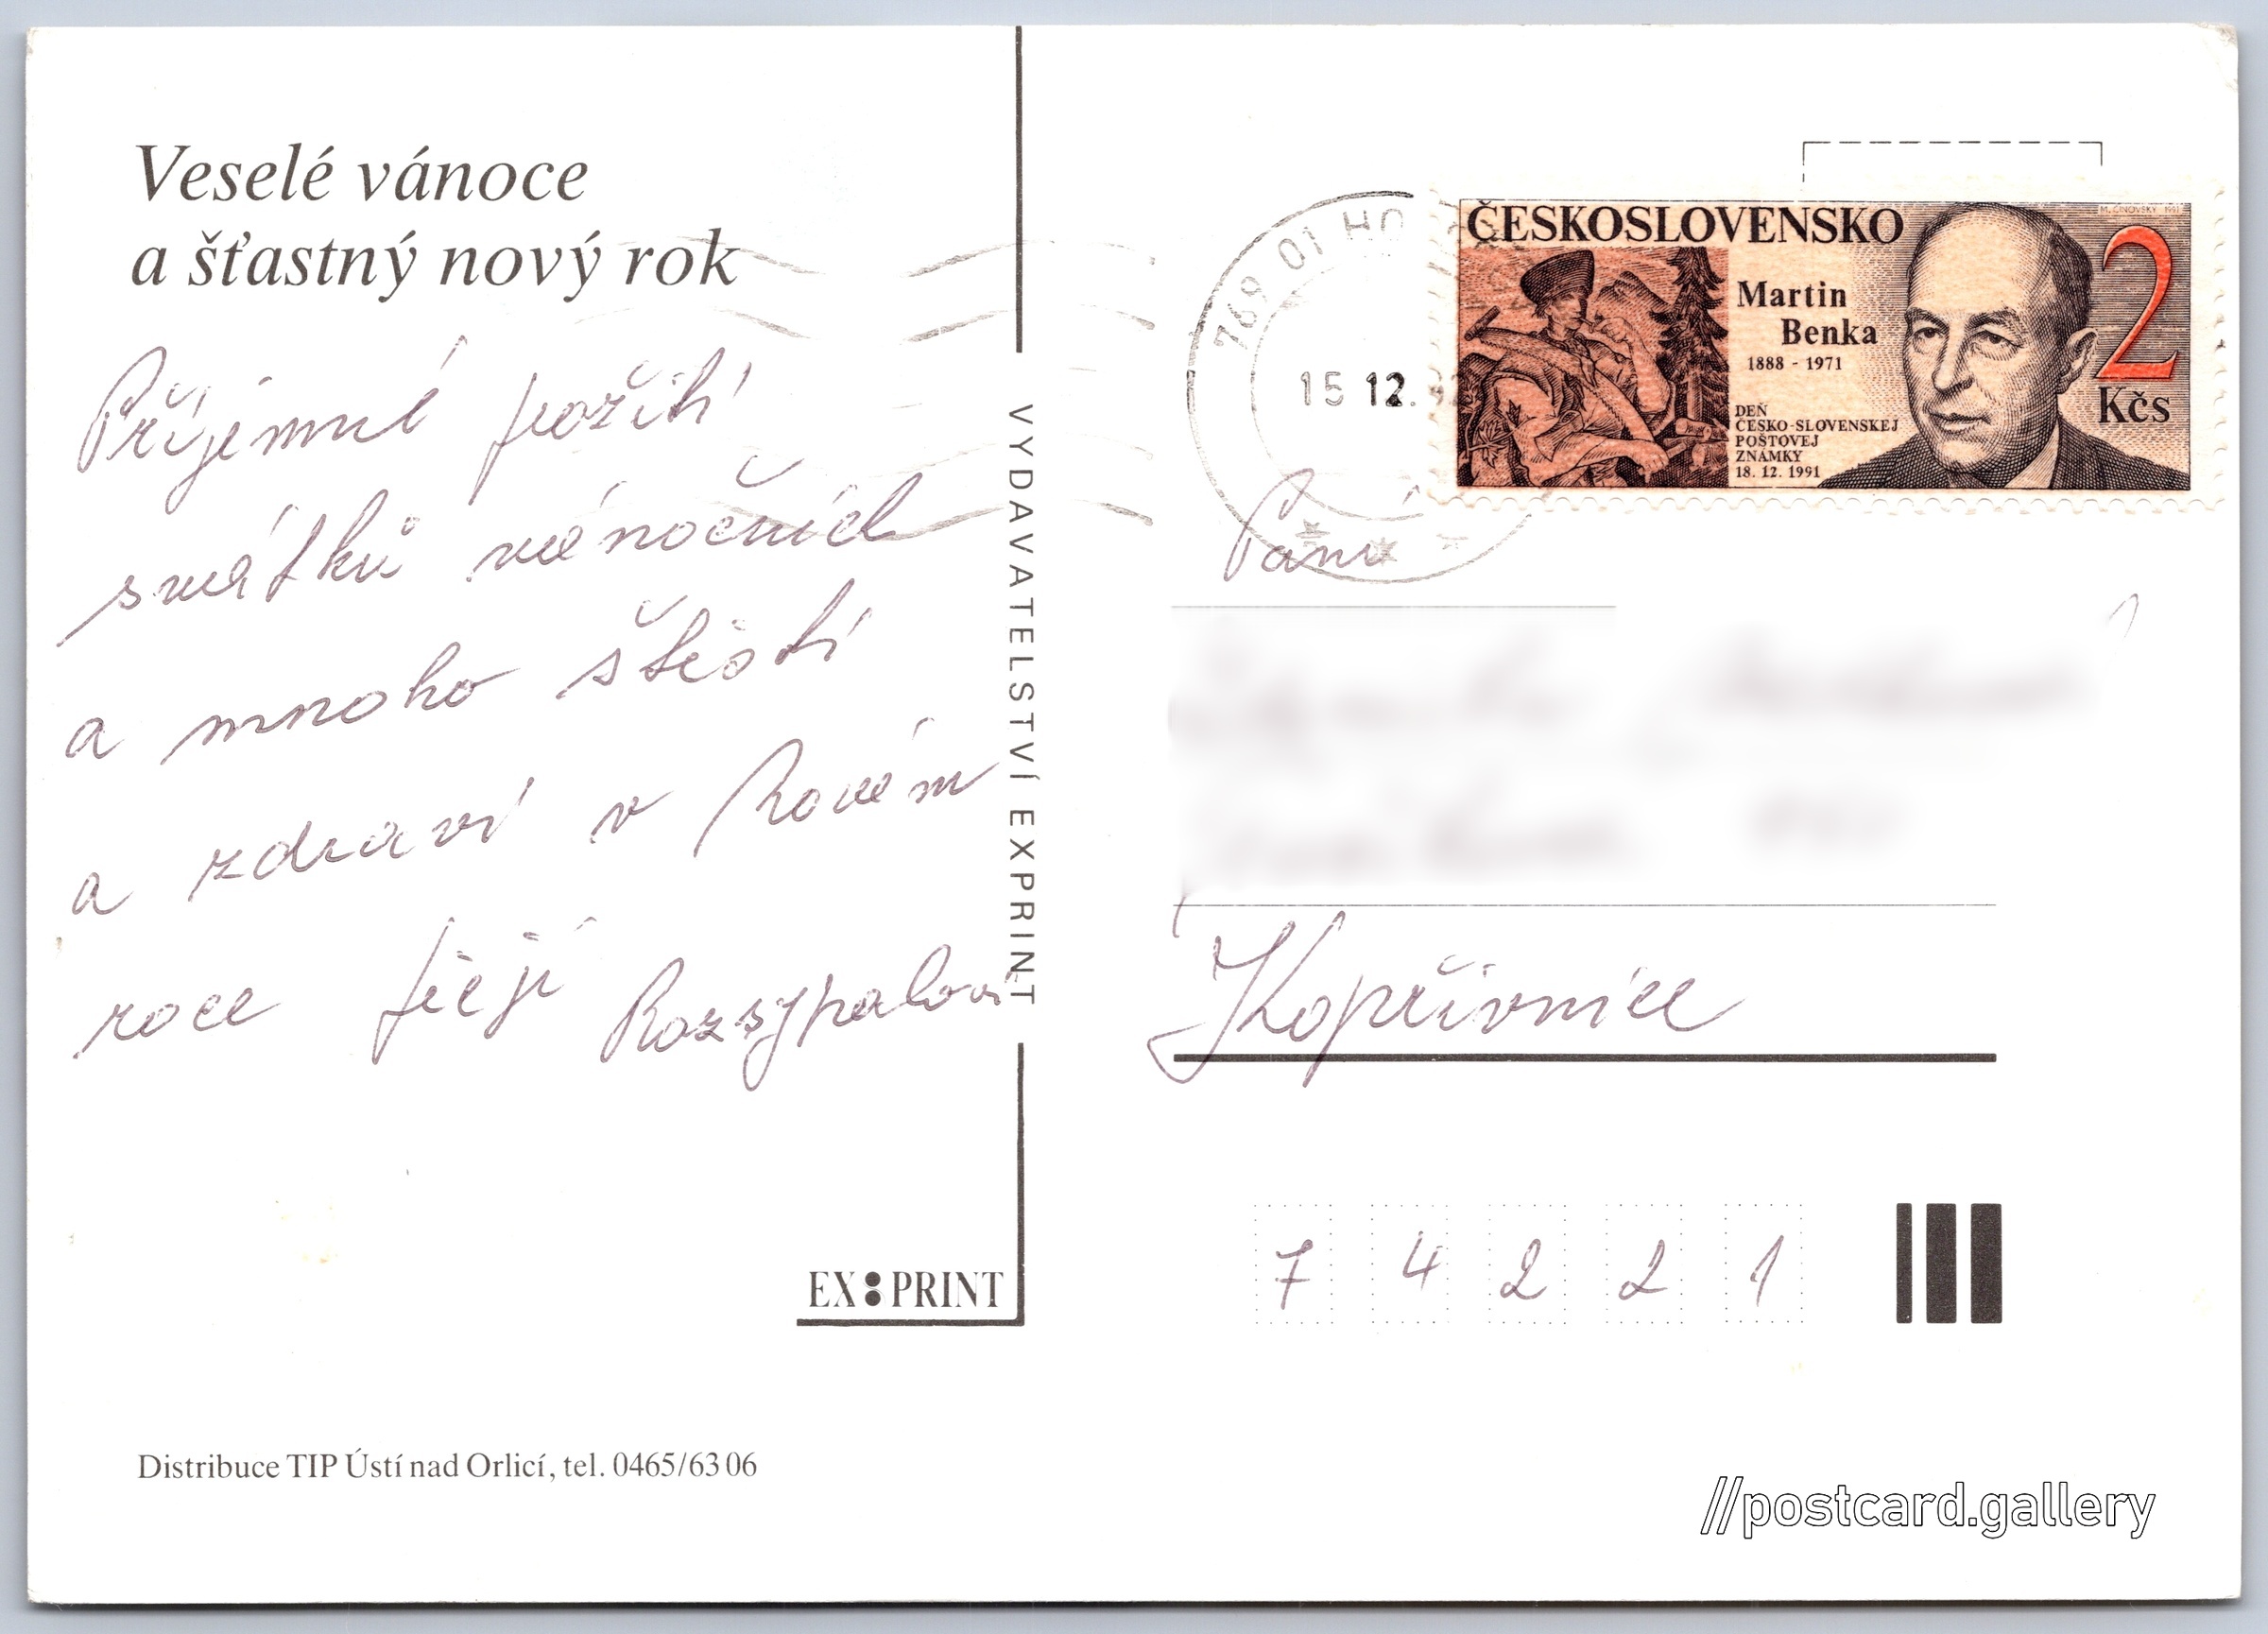 Veselé vánoce
a šťastný nový rok
Příjemné požití
svátků vánočních
a mnoho štěstí
a zdraví v Novém
roce přejí Rozsypalovi
VYDAVATELSTVÍ EXPRINT
EX:PRINT
Distribuce TIP Ústí nad Orlicí, tel. 0465/63 06
769 01 HO
15 12. 92
ČESKOSLOVENSKO
Martin
Benka
1888 - 1971
DEŇ
ČESKO-SLOVENSKEJ
POŠTOVEJ
ZNÁMKY
18. 12. 1991
2
Kčs
Paní
Kopřivnice
7 4 2 2 1
//postcard.gallery